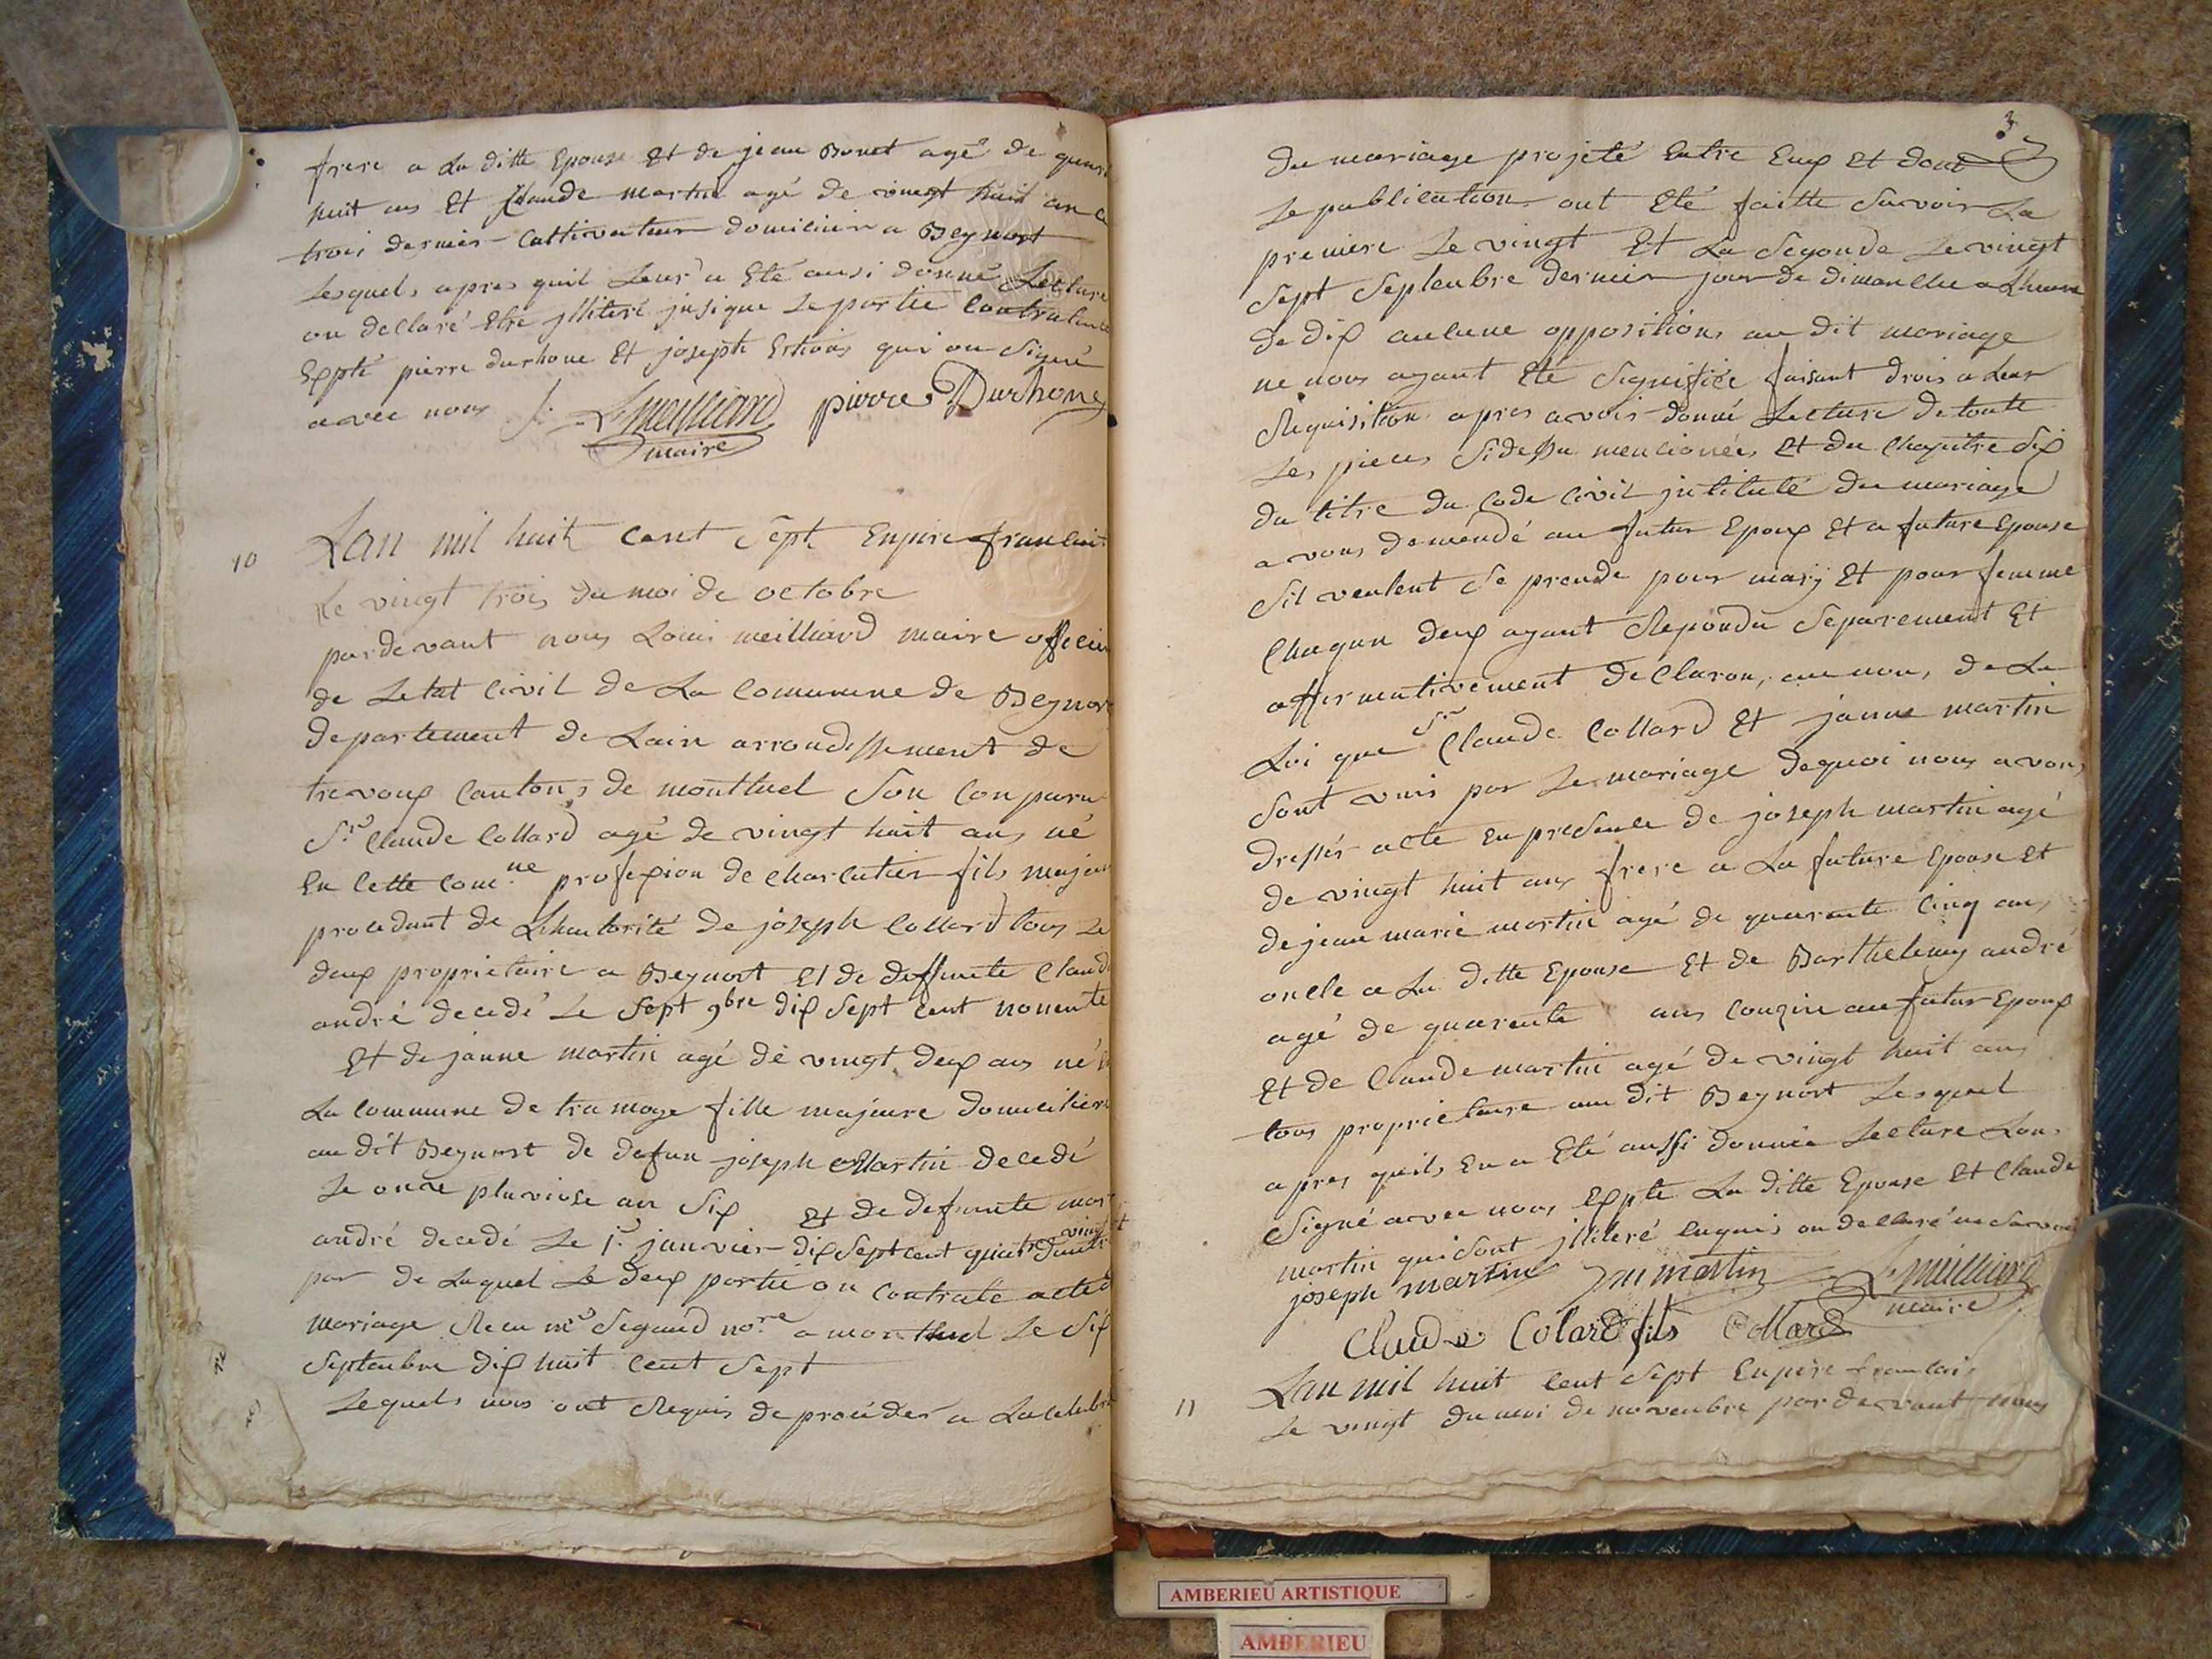 frere a La ditte Epouse Et de jean Bonet agé de quara
huit ans Et Claude martin agé de vingt huit an
trois dernier Cultivateur domicilier a Beynost
Lesquels apres quil Leur a Eté ausi donné Lecture
on declaré Etre jlliteré jusique Le partie Contractante
Expté pierre durhone Et joseph qui on Signé
avec nous
L. meilliard pierre Durhone
maire
10
Lan mil huit Cent Sept Enpire francais
Le vingt trois du moi de octobre
pardevant nous Louis meilliard maire officier
de Letat Civil de La Comunune de Beynost
departement de Lain arrondissement de
trevoux Cantons de montluel Son Conparu
Sr. Claude Collard agé de vingt huit ans né
En Cette Com.ne profesion de charcutier fils majeur
procedant de Lhautorité de joseph Collard tous Le
deux proprietaire a Beynost Et de deffunte Claud
andré decedé Le Sept 9bre dix Sept Cent nonente
Et de janne martin agé de vingt deux ans né
La Commune de tramoye fille majeure domicilier
au dit Beynost de defun joseph Martin decedé
Le onze pluviose an Six Et de defunte mar
andré decedé Le 1r. janvier dix Sept cent quatre vingt
par de Laquel Le deux partie on Contracté acte d
mariage Recu me Segaud no.re a montluel Le Six
Septenbre dix huit Cent Sept
Lequels nous ont Requis de proceder a La celebra
3
du mariage projeté Entre Eux Et dont
Le publication ont Eté faitte Savoir La
premiere Le vingt Et La Segonde Le vingt
Sept Septenbre dernier jour de dimanche a Lheure
de dix aucune oppositions au dit mariage
ne nous ayant Eté Signifiée faisant drois a Leur
Requisition apres avoir donné Lecture de toute
Les pieces Sidessu mencionées Et du Chapitre Six
du titre du Code Civil jntitulé du mariage
avons demendé au futur Epoux Et a future Epouse
Sil veulent Se prende pour mary Et pour femme
Chaqun deux ayant Repondu Separement Et
affirmativement declaron, au non, de La
Loi que Sr Claude Collard Et janne martin
Sont unis par Le mariage dequoi nous avons
dressér acte En presence de joseph martin agé
de vingt huit ans frere a La future Epouse Et
de jean marie martin agé de quarante Cinq ans
oncle a La ditte Epouse Et de Barthelemy andré
agé de quarente ans Couzin au futur Epoux
Et de Claude martin agé de vingt huit ans
tous proprietaire au dit Beynost Lesquel
apres quils En a Eté aussi donnée Lecture Lon
Signé avec nous Expté La ditte Epouse Et Claude
martin qui Sont jlliteré Enquis on declaré ne Savoir
joseph martin jm martin L. meilliard
maire
Claude Colard fils Collard
11
Lan mil huit Cent Sept Enpire francais
Le vingt du moi de novenbre pardevant nous
AMBERIEU ARTISTIQUE
AMBERIEU